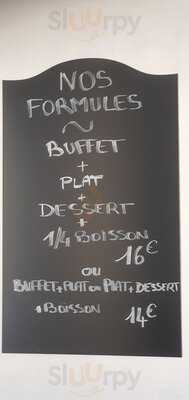 Sluurpy
NOS
FORMULES
~
BUFFET
+
PLAT
+
DESSERT
+
1/4 BOISSON
16€
OU
BUFFET+PLAT OU PLAT+DESSERT
+ BOISSON 14€
Sluurpy